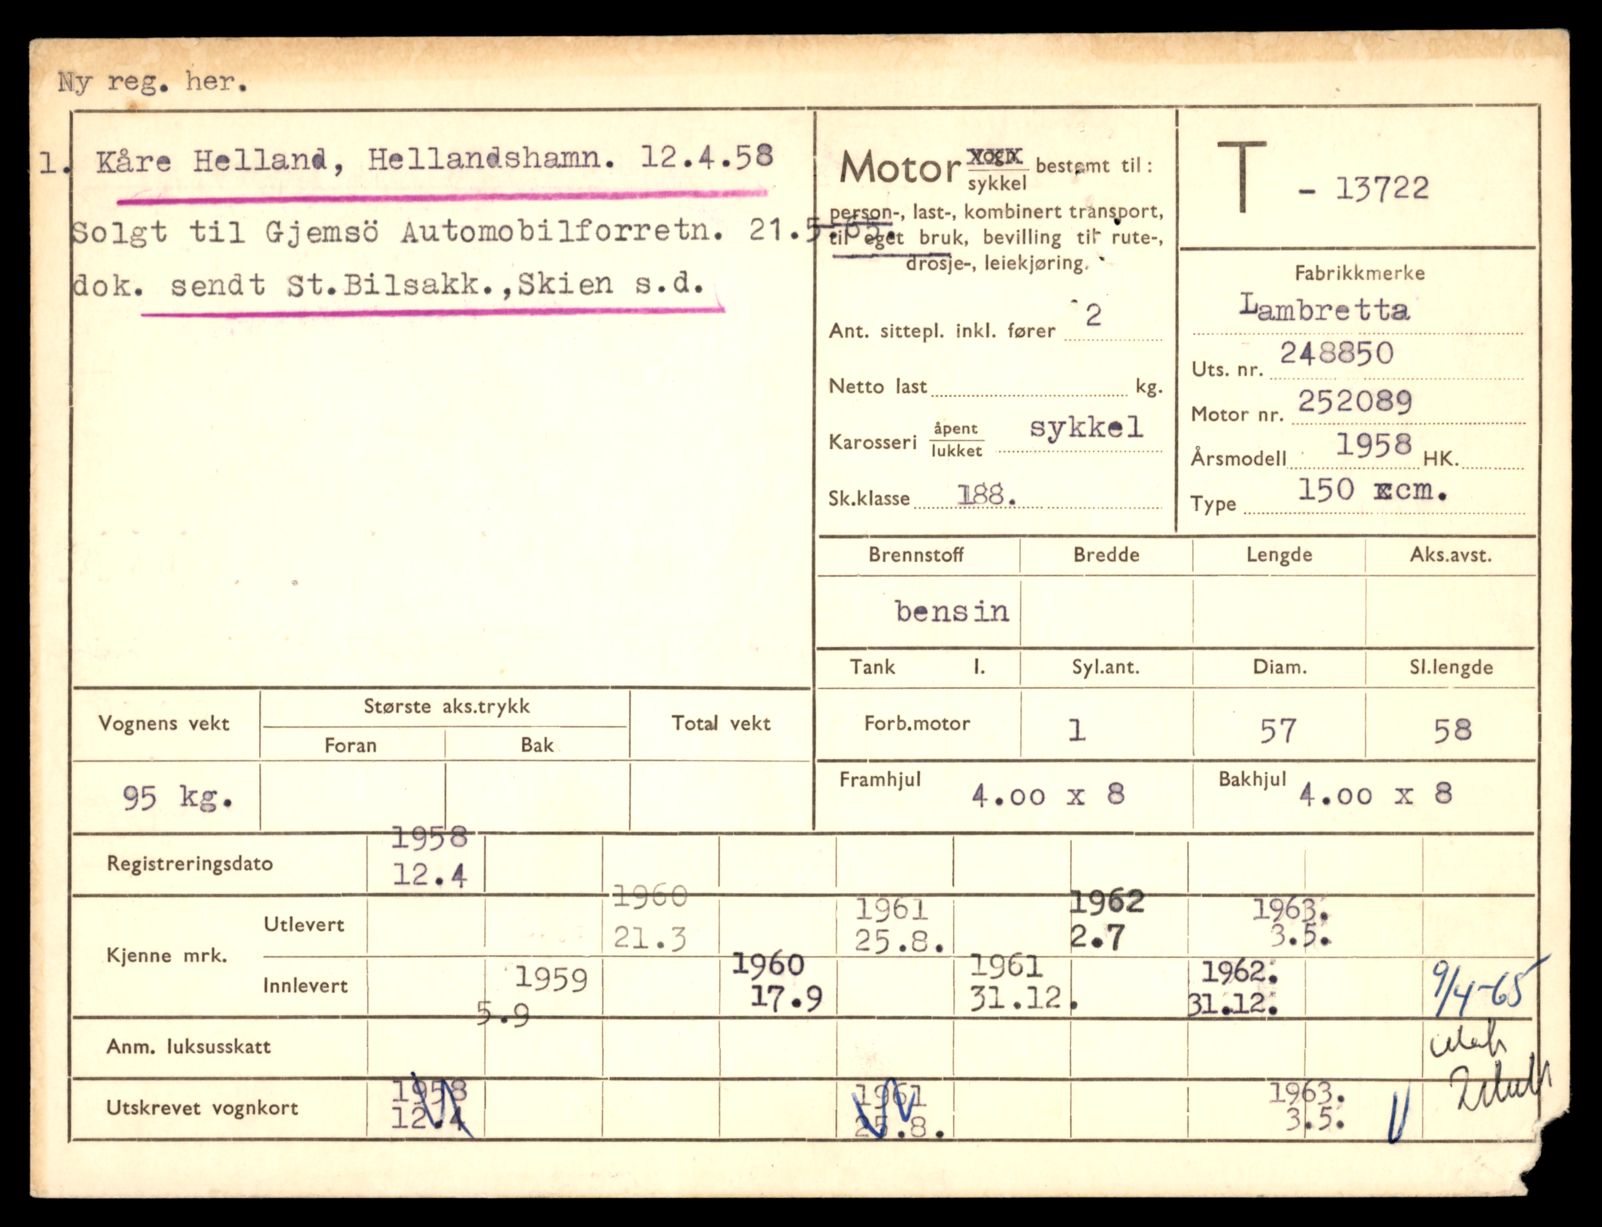 Ny reg. her.
1. Kåre Helland, Hellandshamn. 12.4.58
Solgt til Gjemsö Automobilforretn. 21.5.65.
dok. sendt St.Bilsakk.,Skien s.d.
Motor vogn bestemt til :
sykkel
person-, last-, kombinert transport,
til eget bruk, bevilling til rute-,
drosje-, leiekjøring.
Ant. sittepl. inkl. fører 2
Netto last kg.
Karosseri åpent sykkel
lukket
Sk.klasse 188.
T - 13722
Fabrikkmerke
Lambretta
Uts. nr. 248850
Motor nr. 252089
Årsmodell 1958 HK.
Type 150 ccm.
Brennstoff Bredde Lengde Aks.avst.
bensin
Tank l. Syl.ant. Diam. Sl.lengde
Forb.motor 1 57 58
Framhjul 4.00 x 8 Bakhjul 4.00 x 8
Vognens vekt Største aks.trykk Total vekt
Foran Bak
95 kg.
1958
Registreringsdato 12.4
1960 1961 1962 1963.
Utlevert 21.3 25.8. 2.7 3.5.
Kjenne mrk.
Innlevert 1959 1960 1961 1962. 9/4-65
5.9 17.9 31.12. 31.12.
Anm. luksusskatt
1958 1961 1963.
Utskrevet vognkort 12.4 25.8. 3.5.